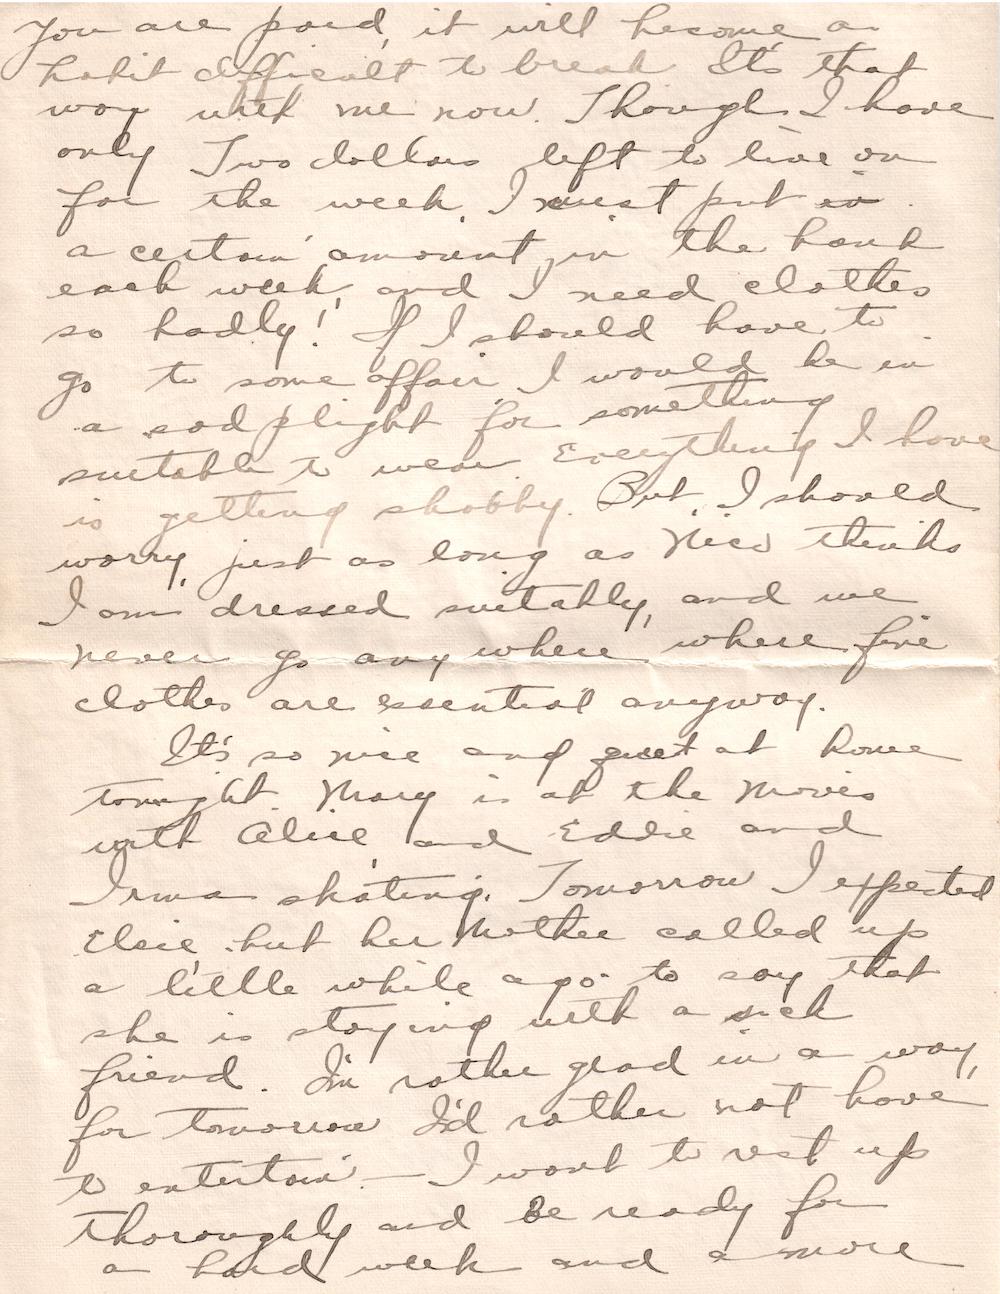 you are paid, it will become a
habit difficult to break. It's that
way with me now. Though I have
only Two dollars left to live on
for the week, I must put in
a certain amount in the bank
each week and I need clothes
so badly! If I should have to
go to some affair I would be in
a sad plight for something
suitable to wear Everything I have
is getting shabby. But, I should
worry, just as long as Nico thinks
I am dressed suitably, and we
never go any where, where fine
clothes are essential anyway.
It's so nice and quiet at home
tonight. Mary is at the Movies
with Alice, and Eddie and
Irma skating. Tomorrow I expected
Elsie, but her Mother called up
a little while ago to say that
she is staying with a sick
friend. I'm rather glad in a way,
for tomorrow I'd rather not have
to entertain. — I want to rest up
thoroughly and be ready for
a hard week and a more